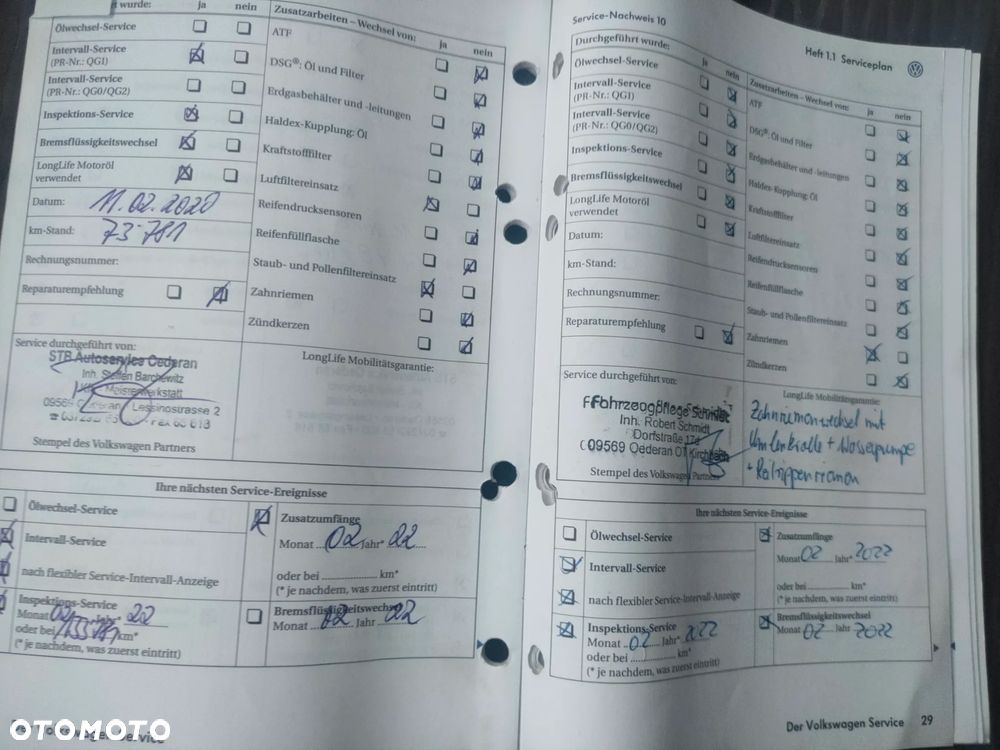 t wurde:
ja
nein
Ölwechsel-Service
Intervall-Service
(PR-Nr.: QG1)
Intervall-Service
(PR-Nr.: QG0/QG2)
Inspektions-Service
Bremsflüssigkeitswechsel
LongLife Motoröl
verwendet
Datum: 11.02.2020
km-Stand: 73.781
Rechnungsnummer:
Reparaturempfehlung
Zusatzarbeiten – Wechsel von:
ja
nein
ATF
DSG®: Öl und Filter
Erdgasbehälter und -leitungen
Haldex-Kupplung: Öl
Kraftstofffilter
Luftfiltereinsatz
Reifendrucksensoren
Reifenfüllflasche
Staub- und Pollenfiltereinsatz
Zahnriemen
Zündkerzen
Service durchgeführt von:
STB Autoservice Oederan
Inh. Steffen Barchewitz
Meisterwerkstatt
09569 Oederan Lessingstrasse 2
Stempel des Volkswagen Partners
LongLife Mobilitätsgarantie:
Ihre nächsten Service-Ereignisse
Ölwechsel-Service
Intervall-Service
nach flexibler Service-Intervall-Anzeige
Inspektions-Service
Monat 02 Jahr* 22
oder bei km*
(* je nachdem, was zuerst eintritt)
Zusatzumfänge
Monat 02 Jahr* 22
oder bei km*
(* je nachdem, was zuerst eintritt)
Bremsflüssigkeitswechsel
Monat 02 Jahr 22
Volkswagen Service
Service-Nachweis 10
Heft 1.1 Serviceplan
Durchgeführt wurde:
ja
nein
Ölwechsel-Service
Intervall-Service
(PR-Nr.: QG1)
Intervall-Service
(PR-Nr.: QG0/QG2)
Inspektions-Service
Bremsflüssigkeitswechsel
LongLife Motoröl
verwendet
Datum:
km-Stand:
Rechnungsnummer:
Reparaturempfehlung
Zusatzarbeiten – Wechsel von:
ja
nein
ATF
DSG®: Öl und Filter
Erdgasbehälter und -leitungen
Haldex-Kupplung: Öl
Kraftstofffilter
Luftfiltereinsatz
Reifendrucksensoren
Reifenfüllflasche
Staub- und Pollenfiltereinsatz
Zahnriemen
Zündkerzen
Service durchgeführt von:
Fahrzeugpflege Schmidt
Inh. Robert Schmidt
Dorfstraße 17d
09569 Oederan OT Kirchbach
Stempel des Volkswagen Partners
LongLife Mobilitätsgarantie:
Zahnriemenwechsel mit
Umlenkrolle + Wasserpumpe
+ Keilrippenriemen
Ihre nächsten Service-Ereignisse
Ölwechsel-Service
Intervall-Service
nach flexibler Service-Intervall-Anzeige
Inspektions-Service
Monat 02 Jahr* 2022
oder bei km*
(* je nachdem, was zuerst eintritt)
Zusatzumfänge
Monat 02 Jahr* 2022
oder bei km*
(* je nachdem, was zuerst eintritt)
Bremsflüssigkeitswechsel
Monat 02 Jahr 2022
Der Volkswagen Service 29
OTOMOTO